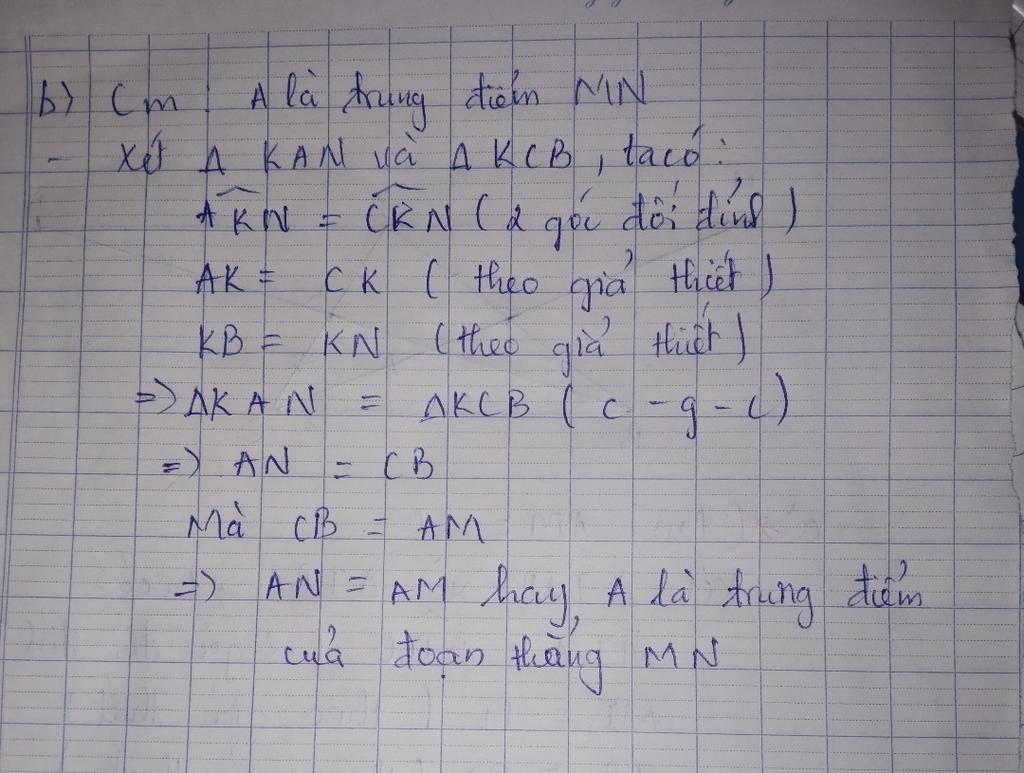 b) Cm : A là trung điểm MN
- Xét Δ KAN và Δ KCB, ta có:
AKN = CKN (2 góc đối đỉnh)
AK = CK (theo giả thiết)
KB = KN (theo giả thiết)
=> ΔKAN = ΔKCB (c-g-c)
=> AN = CB
Mà CB = AM
=> AN = AM hay A là trung điểm
của đoạn thẳng MN